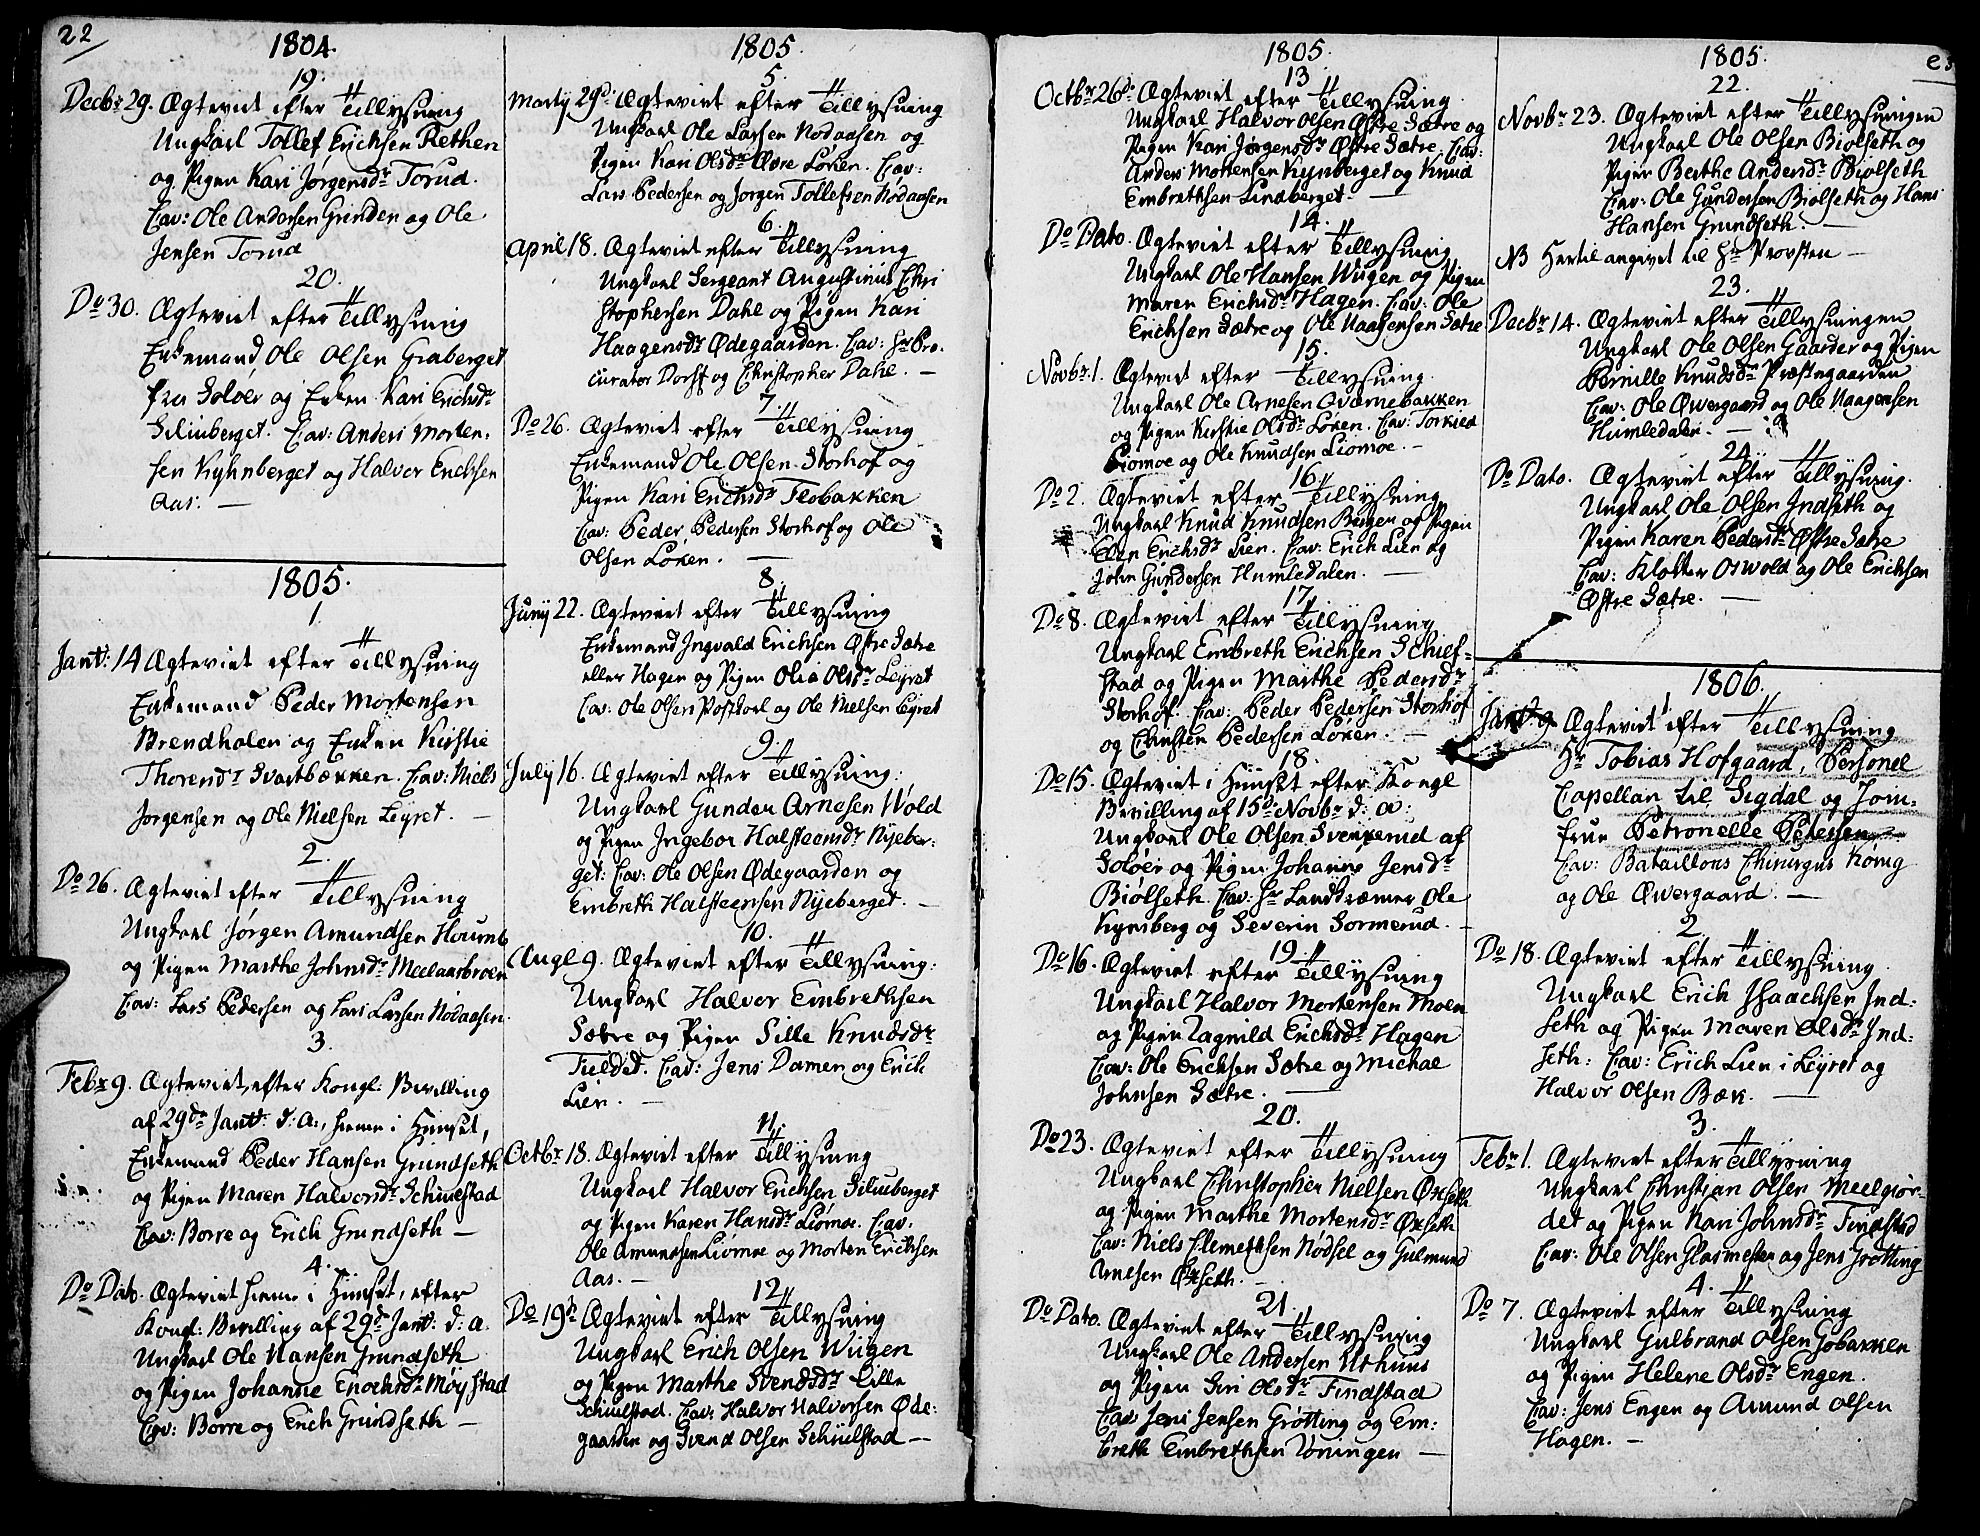 22
1804.
19.
Decbr 29. Ægteviet efter Tillysning
Ungkarl Tollef Erichsen Rethen
og Pigen Kari Jørgensdr Torud.
Cav: Ole Andersen Grinden og Ole
Jensen Torud
20.
Do 30. Ægteviet efter Tillysning
Enkemand Ole Olsen Graberget
fra Soløer og Enken Kari Erichsdr
Siliuberget. Cav: Anders Morten-
sen Kyhnberget og Halvor Erichsen
Aas. —
1805.
1
Janv: 14 Ægteviet efter Tillysning
Enkemand Peder Mortensen
Brendholen og Enken Kirstie
Thorendr Svartbækken. Cav: Niels
Jørgensen og Ole Nielsen Leyret. —
2.
Do 26. Ægteviet efter Tillysning
Ungkarl Jørgen Amundsen Hournb
og Pigen Marthe Johnsdr Meelaasbroen
Cav: Lars Pedersen og Lars Larsen Nodaasen.
3.
Febr 9. Ægteviet, efter Kongl: Bevilling
af 29de Janv: d: a:, hieme i Huuset,
Enkemand Peder Hansen Grundseth
og Pigen Maren Halvorsdr Schiulstad
Cav: Borre og Erich Grundseth —
4.
Do Dato. Ægteviet hieme i Huuset, efter
Kongl: Bevilling af 29de Janv: d: a.
Ungkarl Ole Hansen Grundseth
og Pigen Johanne Enochsdr Møystad
Cav: Börre og Erich Grundseth —
1805.
5.
Martij 29de Ægteviet efter Tillysning
Ungkarl Ole Larsen Nodaasen og
Pigen Kari Olsdr Øvre Löken. Cav:
Lars Pedersen og Jørgen Tollefsen Nodaasen
6.
April 18. Ægteviet efter Tillysning
Ungkarl Sergeant Augustinus Chri
stophersen Dahl og Pigen Kari
Haagensdr Ødegaarden. Cav: Hr Pro-
curator Dorff og Christopher Dahl. —
7.
Do 26. Ægteviet efter Tillysning
Enkemand Ole Olsen Storhof og
Pigen Kari Erichsdr Flobakken
Cav: Peder Pedersen Storhof og Ole
Olsen Löken. —
8.
Junij 22. Ægteviet efter Tillysning
Enkemand Ingvald Erichsen Østre Sætre
eller Hagen og Pigen Olia Olsdr Leyret
Cav: Ole Olsen Postkarl og Ole Nielsen Leyret
9.
July 16. Ægteviet efter Tillysning:
Ungkarl Gunder Arnesen Wold
og Pigen Ingebor Halsteensdr Nyeber-
get: Cav: Ole Olsen Ødegaarden og
Embreth Halsteensen Nyeberget. —
10.
Augl 9. Ægteviet efter Tillysning:
Ungkarl Halvor Embrethsen
Sætre og Pigen Sille Knudsdr
Fuldet. Cav: Jens Damen og Erich
Lien. —
11.
Octbr 18. Ægteviet efter Tillysning
Ungkarl Halvor Erichsen Siliuberget
og Pigen Karen Hansdr Liömoe. Cav:
Ole Amundsen Liömoe og Morten Erichsen
Aas. —
12.
Do 19de Ægteviet efter Tillysning
Ungkarl Erich Olsen Wügen
og Pigen Marthe Svendsdr Lille
Schiulstad. Cav: Halvor Halvorsen Øde-
gaarden og Svend Olsen Schiulstad —
1805.
13
Octbr 26de Ægteviet efter Tillysning
Ungkarl Halvor Olsen Østre Sætre og
Pigen Kari Jørgensdr Østre Sætre. Cav:
Anders Mortensen Kynberget og Knud
Embrethsen Lindberget. —
14.
Do Dato. Ægteviet efter Tillysning
Ungkarl Ole Hansen Wügen og Pigen
Maren Erichsdr Hagen. Cav: Ole
Erichsen Sætre og Ole Haagensen Sætre
15.
Novbr 1. Ægteviet efter Tillysning.
Ungkarl Ole Arnesen Qværnebakken
og Pigen Kirstie Olsdr Löken. Cav: Torkild
Liomoe og Ole Knudsen Liomoe. —
16.
Do 2. Ægteviet efter Tillysning
Ungkarl Knud Knudsen Bergen og Pigen
Elen Erichsdr Lien. Cav: Erich Lien og
John Gundersen Humledalen. —
17.
Do 8. Ægteviet efter Tillysning
Ungkarl Embreth Erichsen Schief-
stad og Pigen Marthe Pedersdr
Storhof. Cav: Peder Pedersen Storhof
og Christen Pedersen Löken. —
18.
Do 15. Ægteviet i Huuset efter Kongl
Bevilling af 15de Novbr d: a:
Ungkarl Ole Olsen Svenkerud af
Soløer og Pigen Johanne Jensdr
Biölseth. Cav: Hr Landkræmer Ole
Kynsberg og Severin Sormerud. —
19.
Do 16. Ægteviet efter Tillysning
Ungkarl Halvor Mortensen Moen
og Pigen Ragnild Erichsdr Hagen
Cav: Ole Erichsen Sætre og Michae
Johnsen Sætre. —
20.
Do 23. Ægteviet efter Tillysning
Ungkarl Christopher Nielsen Øxseth
og Pigen Marthe Mortensdr Øxseth
Cav: Niels Clemethsen Nödsel og Gulmund
Arnesen Øxseth. —
21.
Do Dato. Ægteviet efter Tillysning
Ungkarl Ole Andersen Uthuus
og Pigen Siri Olsdr Findstad
Cav Jens Jensen Grötting og Em:
breth Embrethsen Löningen —
1805.
22.
Novbr 23. Ægteviet efter Tillysningen
Ungkarl Ole Olsen Biölseth og
Pigen Berthe Andersdr Biölseth
Cav: Ole Gundersen Biölseth og Hans
Hansen Grundseth. —
NB Hertil angivet til Hr Provsten —
23.
Decbr 14. Ægteviet efter Tillysningen
Ungkarl Ole Olsen Gaarder og Pigen
Pernille Knudsdr Præstegaarden
Cav: Ole Qvergaard og Ole Haagensen
Humledalen. —
24.
Do Dato. Ægteviet efter Tillysning.
Ungkarl Ole Olsen Indseth og
Pigen Karen Pedersdr Østre Sætre
Cav: Klokker Oswold og Ole Erichsen
Østre Sætre. —
1806.
1
Janv: 9 Ægteviet efter Tillysning
Hr Tobias Hofgaard, Personel
Capellan til Sigdal og Jom-
frue Petronelle Petersen —
Cav: Bataillons Chirurgus König
og Ole Qvergaard. —
2
Do 18. Ægteviet efter Tillysning.
Ungkarl Erich Isaachsen Ind-
seth og Pigen Maren Olsdr Ind-
seth: Cav: Erich Lien i Leyret og
Halvor Olsen Bæk. —
3.
Febr 1. Ægteviet efter Tillysning
Ungkarl Christian Olsen Meelgiör-
det og Pigen Kari Johnsdr Findstad
Cav: Ole Olsen Glasmester og Jens Grötting
4.
Do 7. Ægteviet efter Tillysning
Ungkarl Gulbrand Olsen Gobakken
og Pigen Helene Olsdr Engen.
Cav: Jens Engen og Amund Olsen
Hagen. —